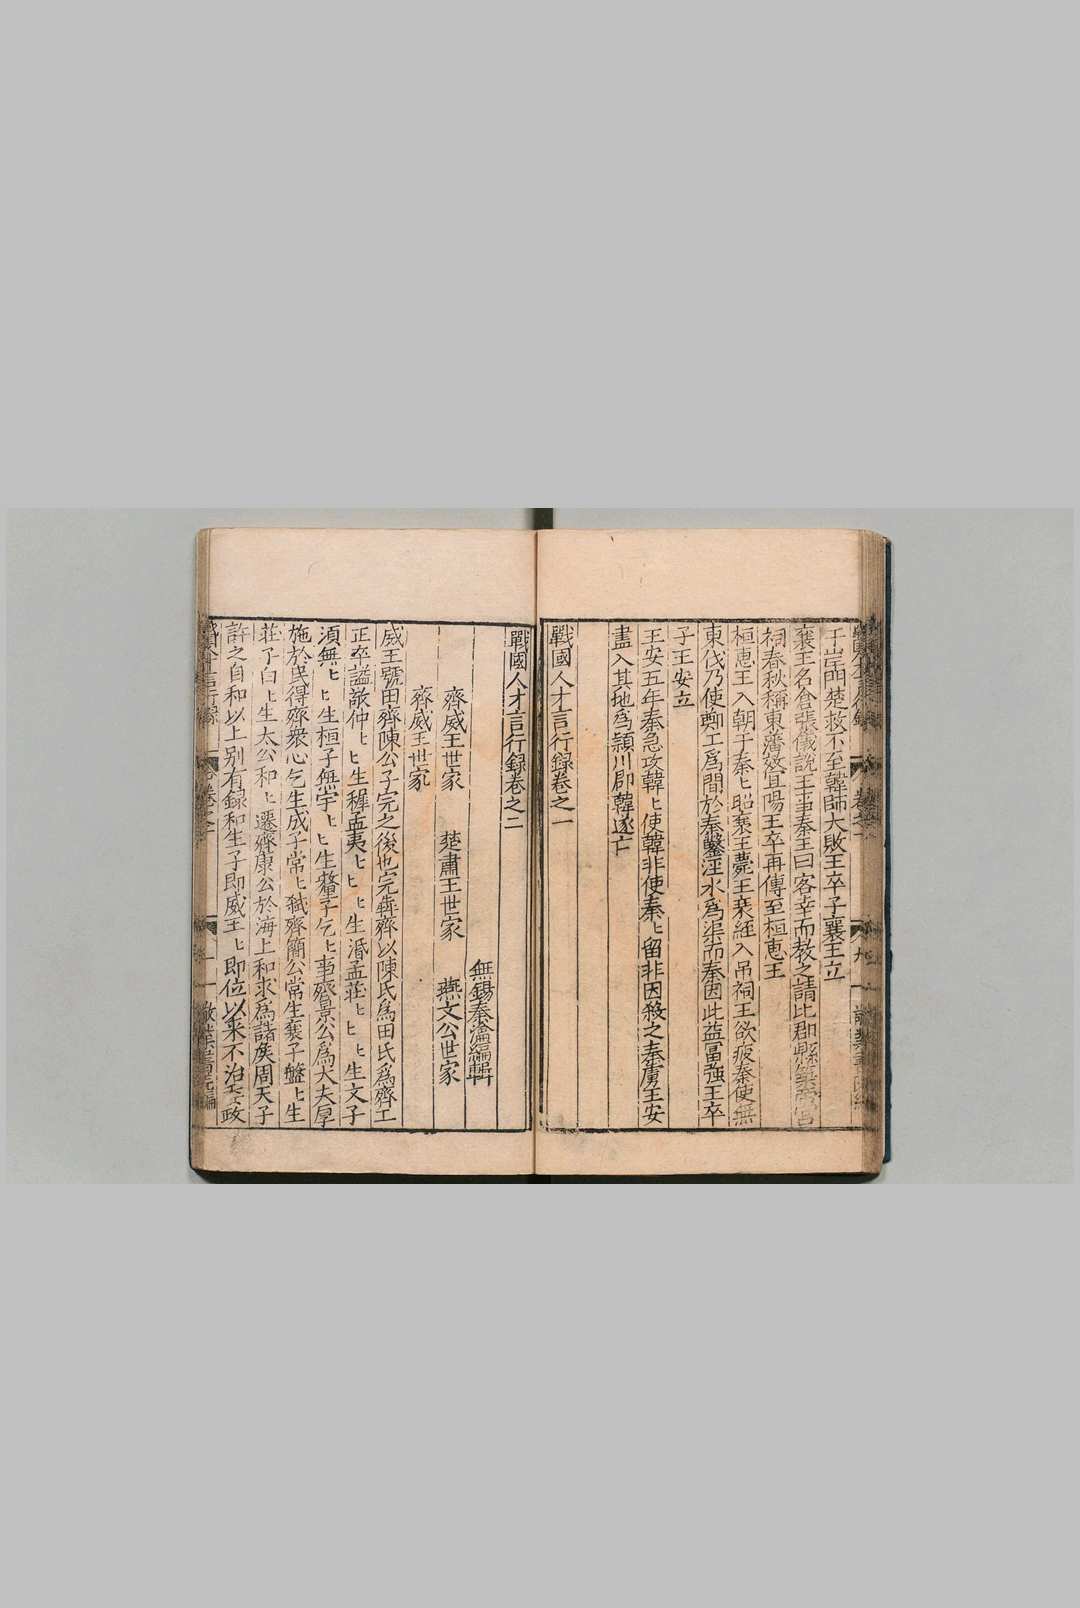 于岸門楚救不至韓師大敗王卒子襄王立
襄王名倉張儀說王事秦王曰客幸而教之請比郡縣築帝宮
祠春秋稱東藩效宜陽王卒再傳至桓惠王
桓惠王入朝于秦〻昭襄王薨王衰絰入吊祠王欲疲秦使無
東伐乃使鄭工爲間於秦鑿涇水爲渠而秦因此益富強王卒
子王安立
王安五年秦急攻韓〻使韓非使秦〻留非因殺之秦虜王安
盡入其地爲潁川郡韓遂亡
戰國人才言行録卷之一
戰國人才言行録卷之二
無錫秦瀹編輯
齊威王世家 楚肅王世家 燕文公世家
齊威王世家
威王號田齊陳公子完之後也完犇齊以陳氏爲田氏爲齊工
正卒謚敬仲〻〻生穉孟夷〻〻〻生湣孟莊〻〻〻生文子
須無〻〻生桓子無宇〻〻生釐子乞〻事齊景公爲大夫厚
施於民得齊衆心乞生成子常〻弑齊簡公常生襄子盤〻生
莊子白〻生太公和〻遷齊康公於海上和求爲諸侯周天子
許之自和以上别有録和生子即威王〻即位以來不治